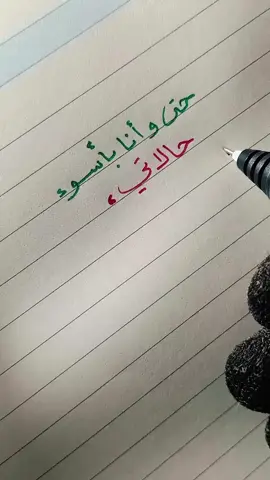 حتى وأنا بأسوء
حالاتيء